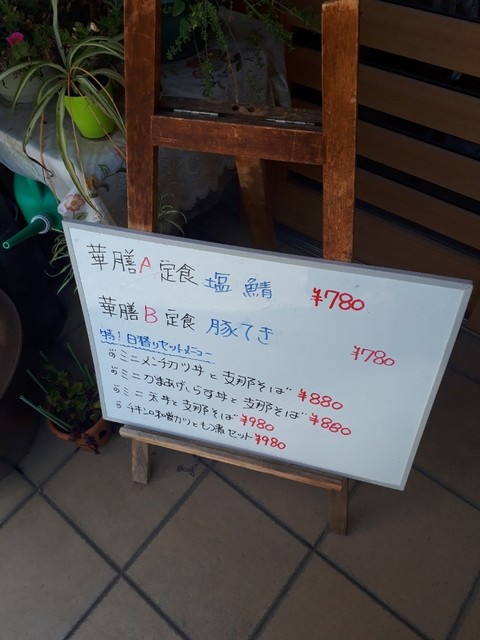 華膳A定食 塩鯖 ¥780
華膳B定食 豚てき ¥780
特!日替りセットメニュー
ミニメンチカツ丼と支那そば ¥880
ミニかまあげしらす丼と支那そば ¥880
ミニ天丼と支那そば ¥980
チキンの和風カツともつ煮セット ¥980